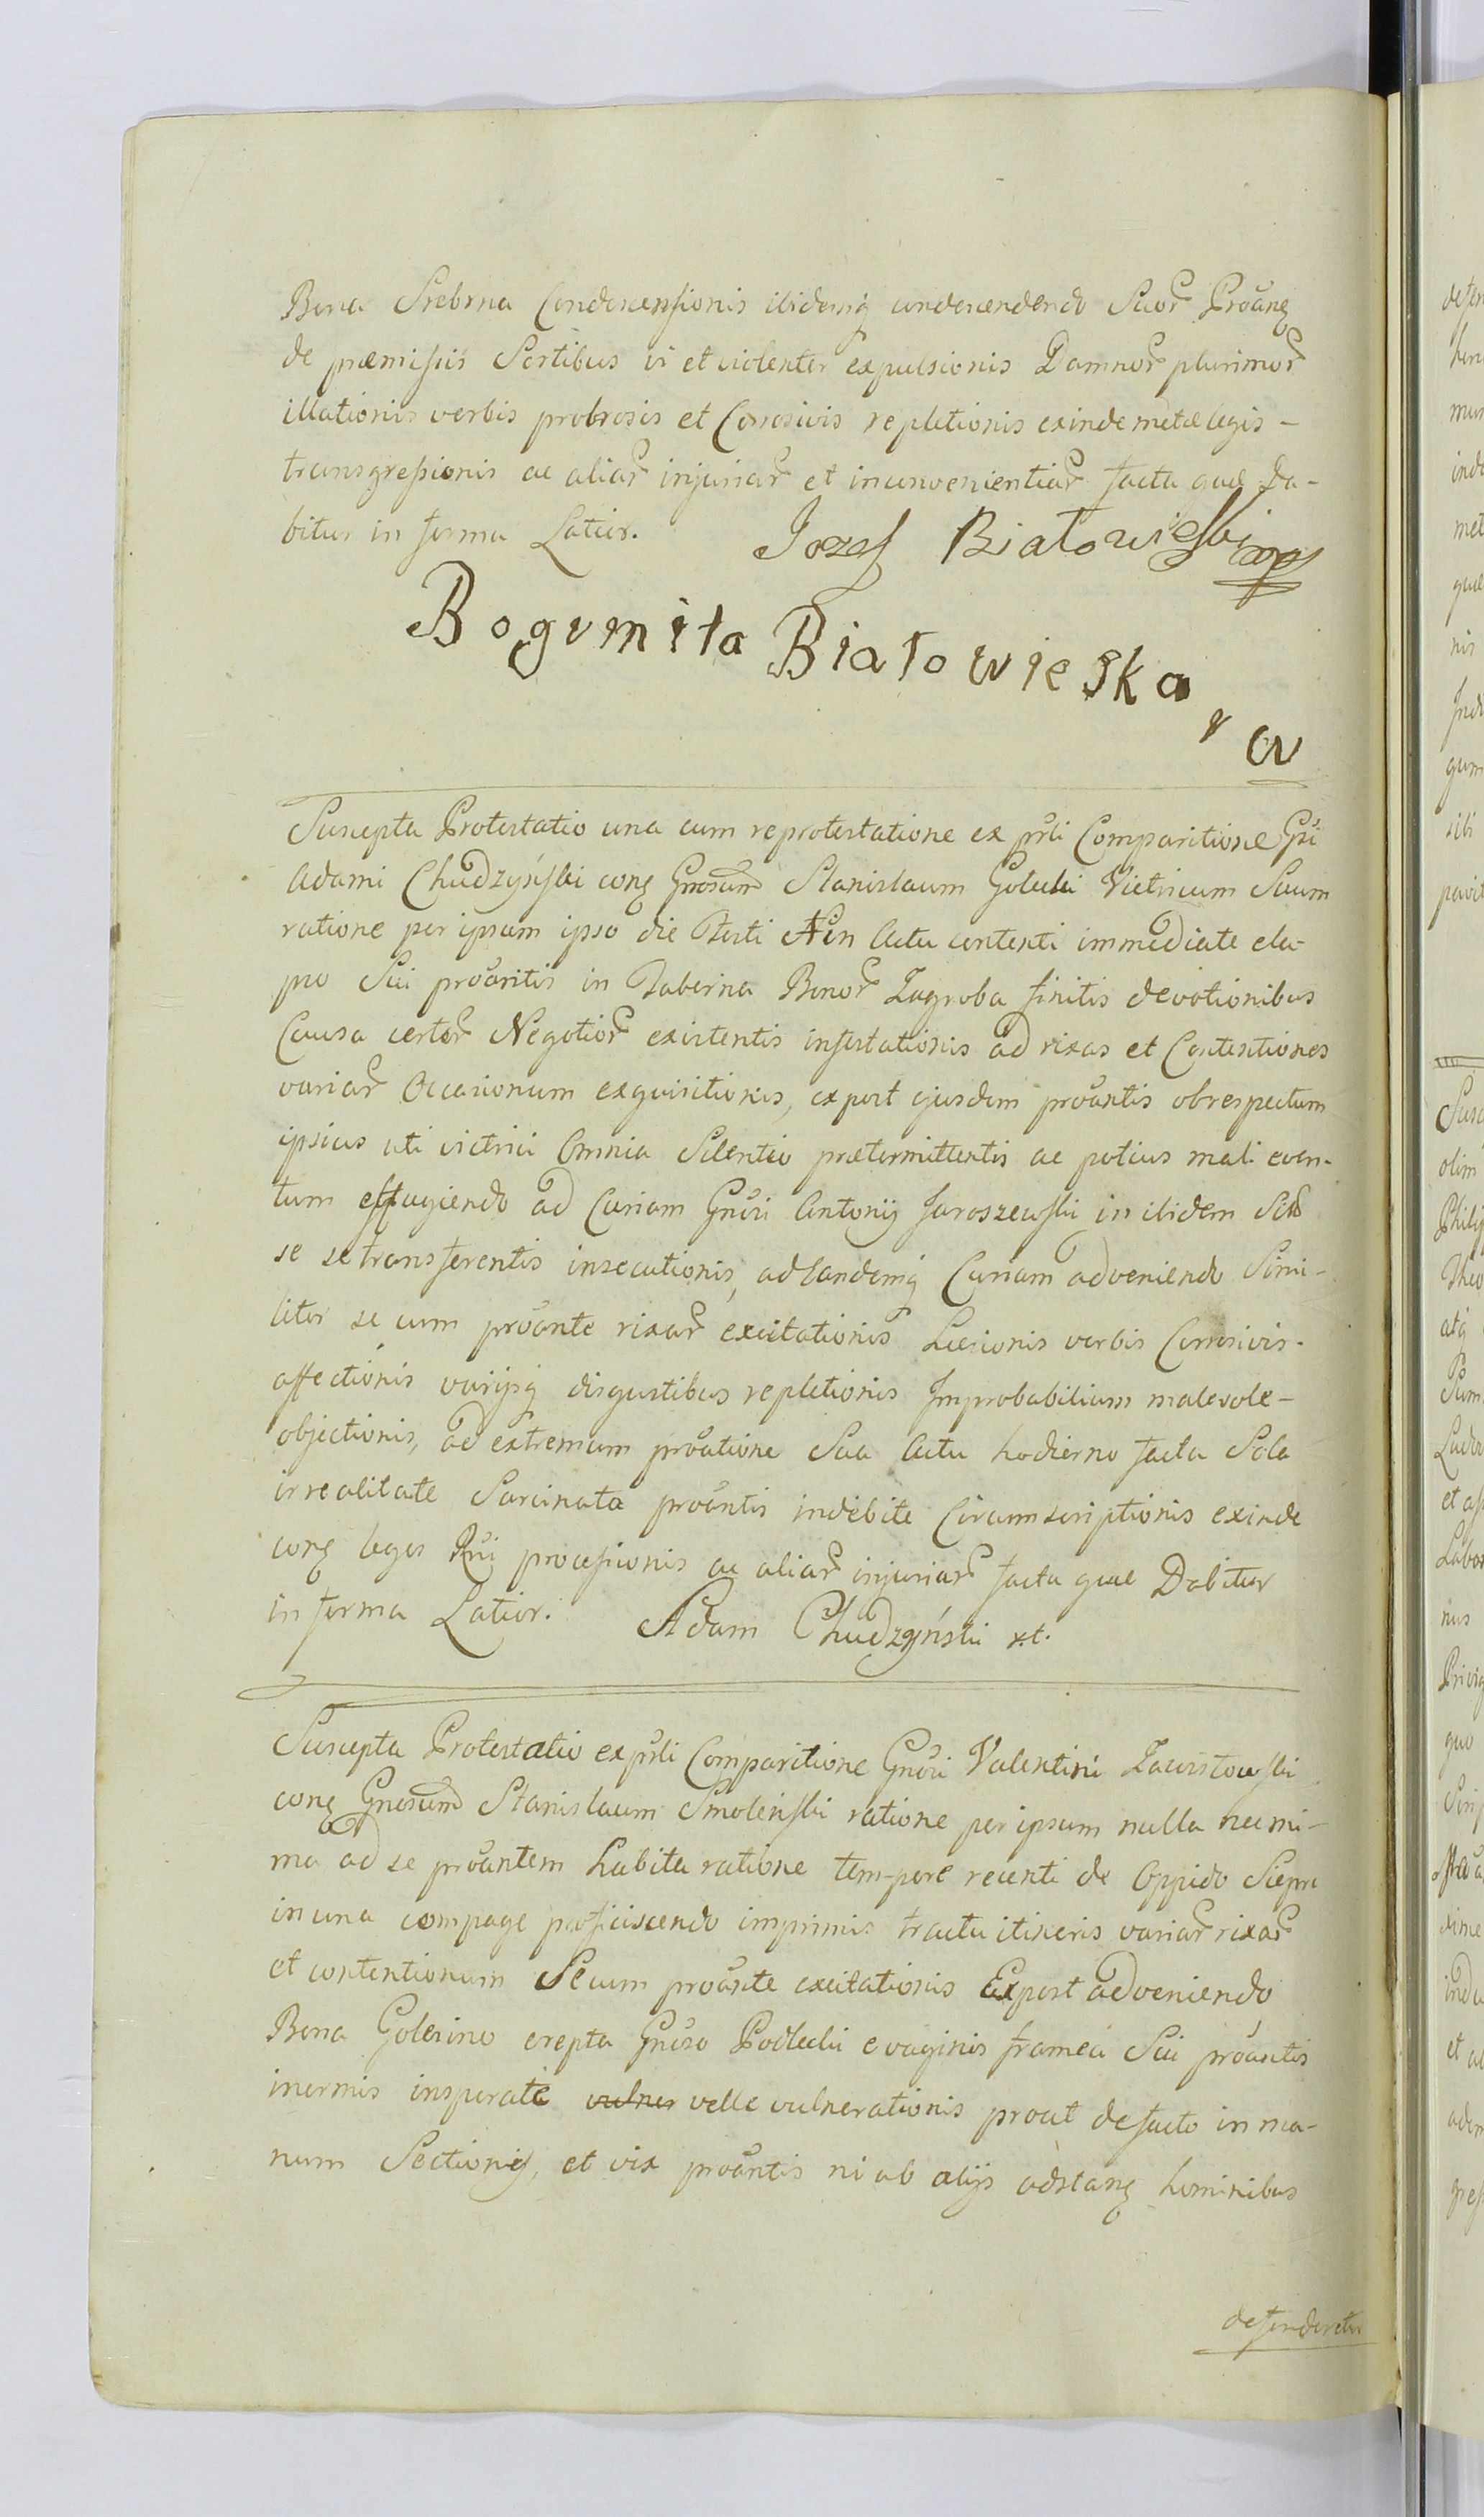 Bona Srebrna Condescensionis ibidemq condescendendo Suor Proãng
de præmissis Sortibus vi et violenter expulsionis Damnor plurimor
illationis verbis probrosis et Corrosivis repletionis exinde metæ legis –
transgressionis ac aliar injuriar et inconvenientiar facta quæ Da-
bitur in forma Latior. Jozef Białowieski mp
Bogumiła Białowieska
Suscepta Protestatio una cum reprotestatione ex prli Comparitione Gsi
Adami Chudzyński cong Gnosum Stanislaum Gołucki Victricum Suum
ratione per ipsum ipso die Festi Non Actu contenti immediate ela-
pso Sui proãntis in Taberna Bonor Zagroba finitis devotionibus
Causa certor Negotior existentis infestationis ad rixas et Contentiones
variar Occasionum exquisitionis, expost ejusdem proãntis ob respectum
ipsius uti victrici Omnia Silentio prætermittentis ac potius mali even-
tum effugiendo ad Curiam Gnõsi Antonij Jaroszewski in ibidem
se se transferentis insecutionis, ad eandemq Curiam adveniendo Simi-
liter se cum proãnte rixar excitationis Læsionis verbis Corrosivis.
affectionis varijsq disgustibus repletionis Improbabilium malevole –
objectionis, ad extremum proãtione Sua Actu hodierno facta Sola
irrealitate Sarcinata proãntis indebite Circumscriptionis exinde
cong leges Rni processionis ac aliar injuriar facta quæ Dabitur
in forma Latior. Adam Chudzyński
Suscepta Protestatio ex prli Comparitione Gnõsi Valentini Zawistowski
cong Gnosum Stanislaum Smoleński ratione per ipsum nulla nec mi-
ma ad se proãntem habita ratione tempore recenti de Oppido Sieprc
in una compage proficiscendo imprimis tractu itineris variar rixar
et contentionum Secum proãnte excitationis Expost adveniendo
Bona Golesino erepta Gnõso Podlecki e vaginis framea Sui proãntis
inermis insperate vulner velle vulnerationis prout de facto in ma-
num Sectionis, et vix proãntis ni ab alijs adstang hominibus
defenderetur